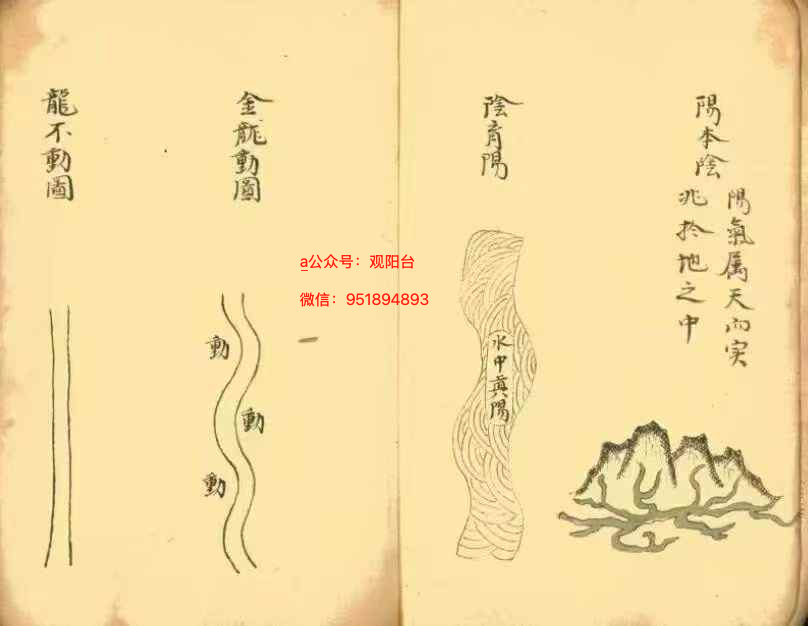 陽本陰
陽氣属天而实
兆於地之中
陰育陽
水中真陽
金龍動圖
動
動
動
龍不動圖
a公众号：观阳台
微信：951894893